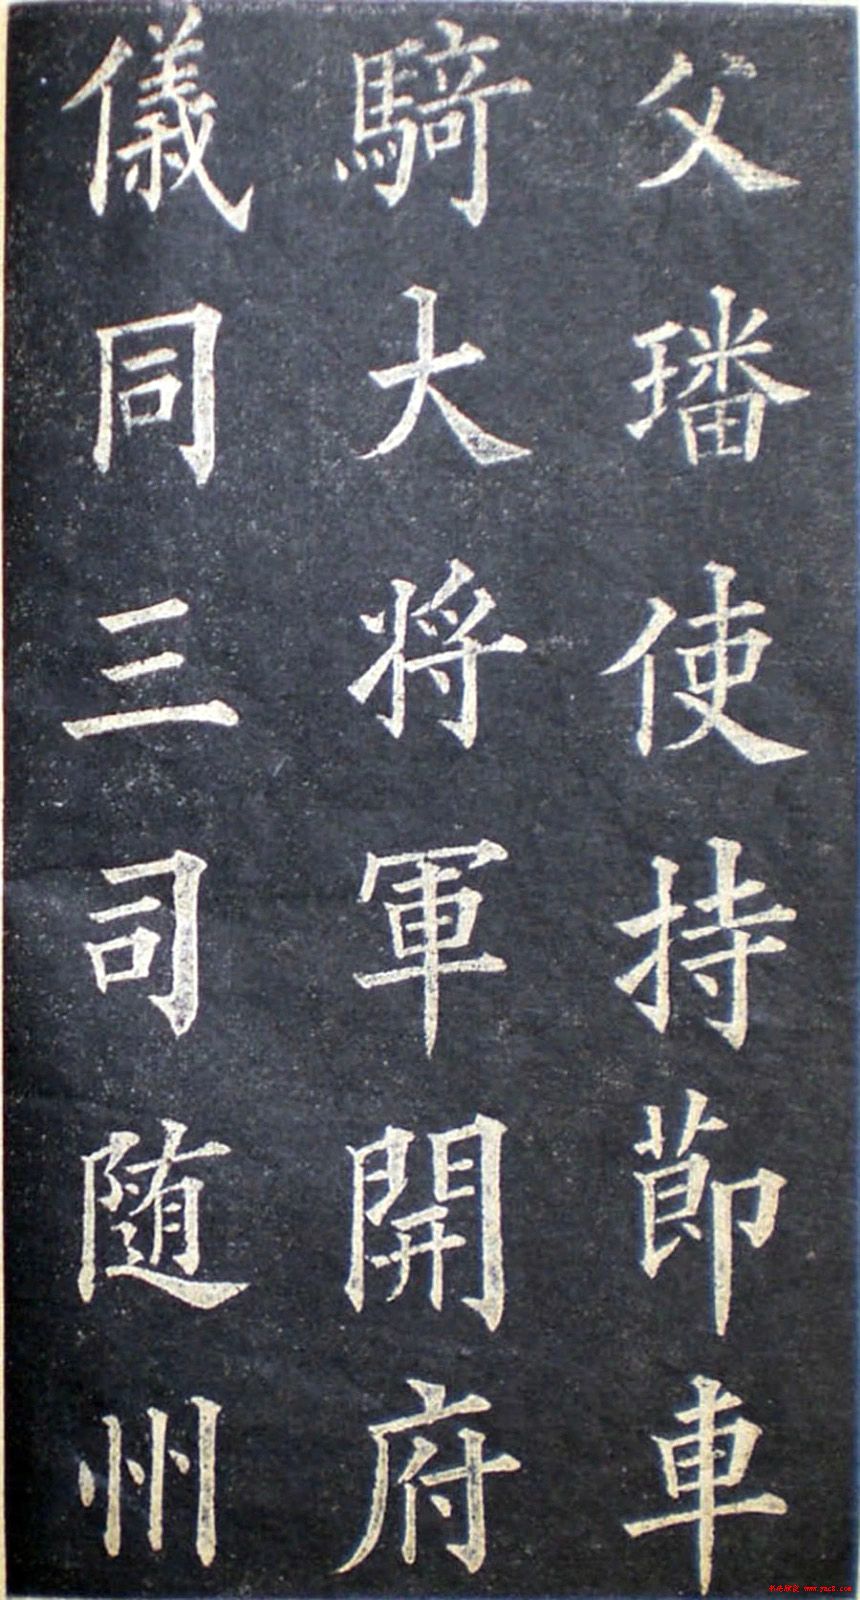 父璠使持節車
騎大将軍開府
儀同三司随州
www.yac8.com